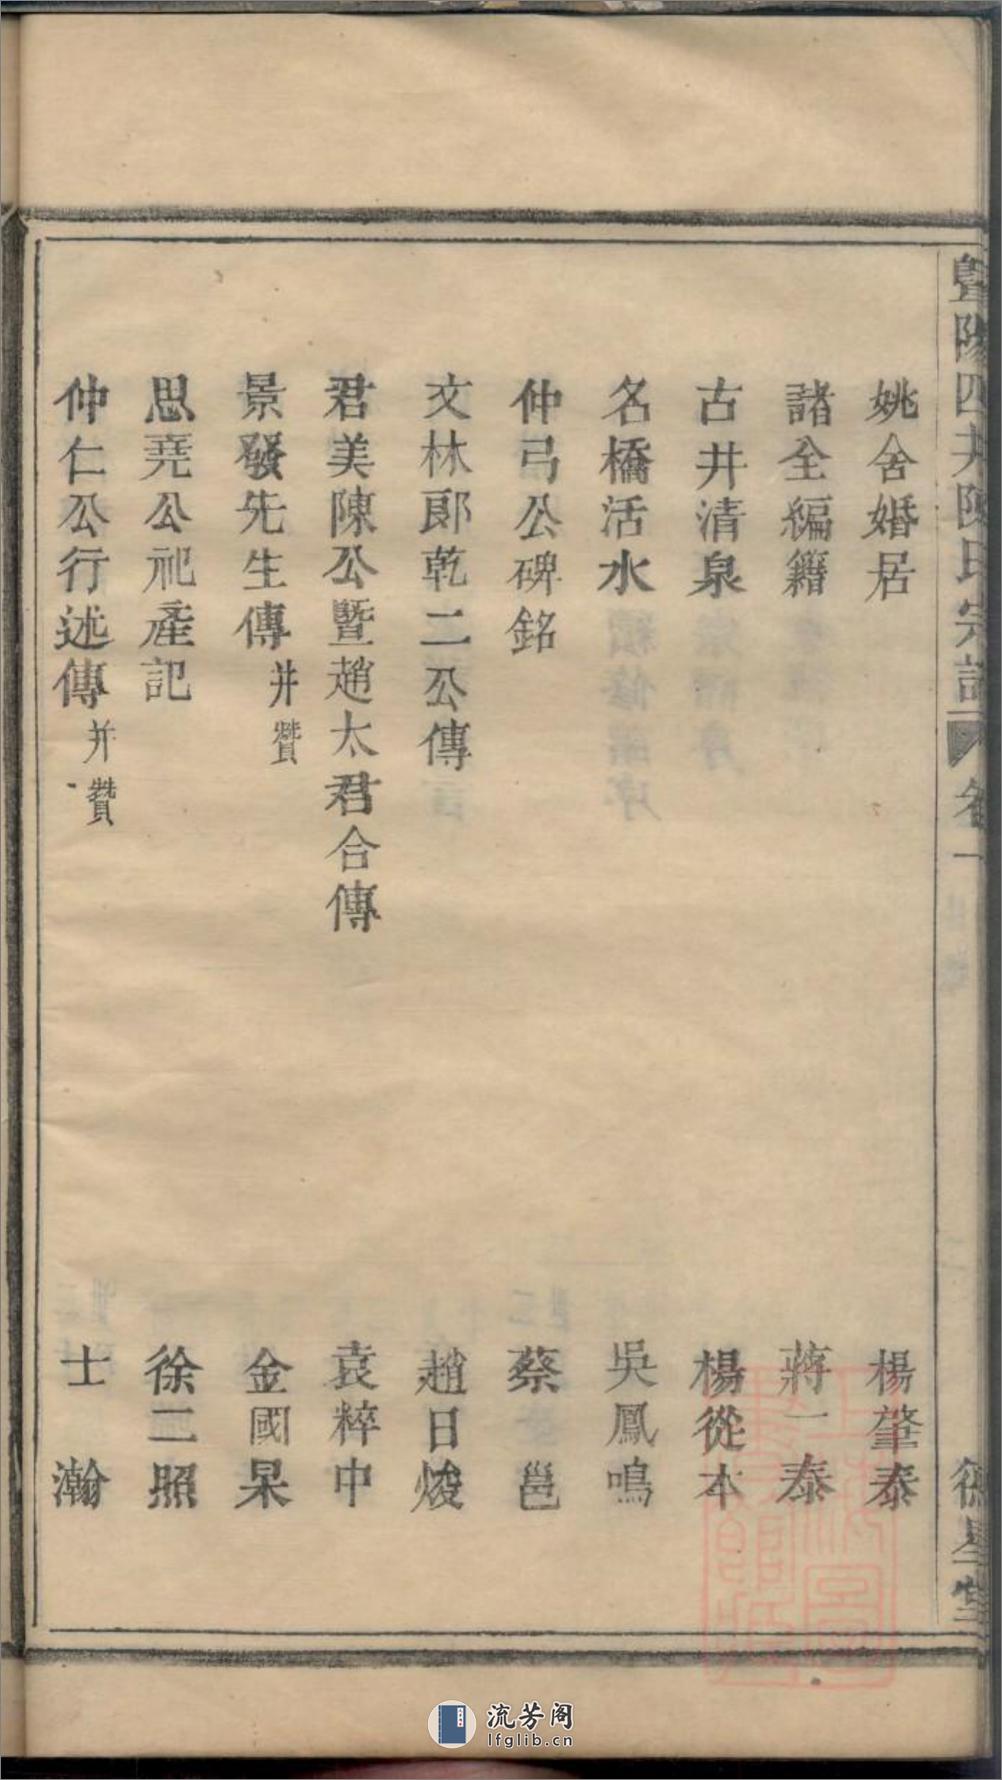 暨陽四井陳氏宗譜 卷一 德星堂
姚舍婚居 楊肇泰
諸全編籍 蔣一泰
古井清泉 楊從本
名橋活水 吳鳳鳴
仲弓公碑銘 蔡邕
文林郎乾二公傳 趙日焌
君美陳公暨趙太君合傳 袁粹中
景發先生傳并贊 金國杲
思堯公祀產記 徐二照
仲仁公行述傳并贊 士瀚
流芳阁
lfglib.cn